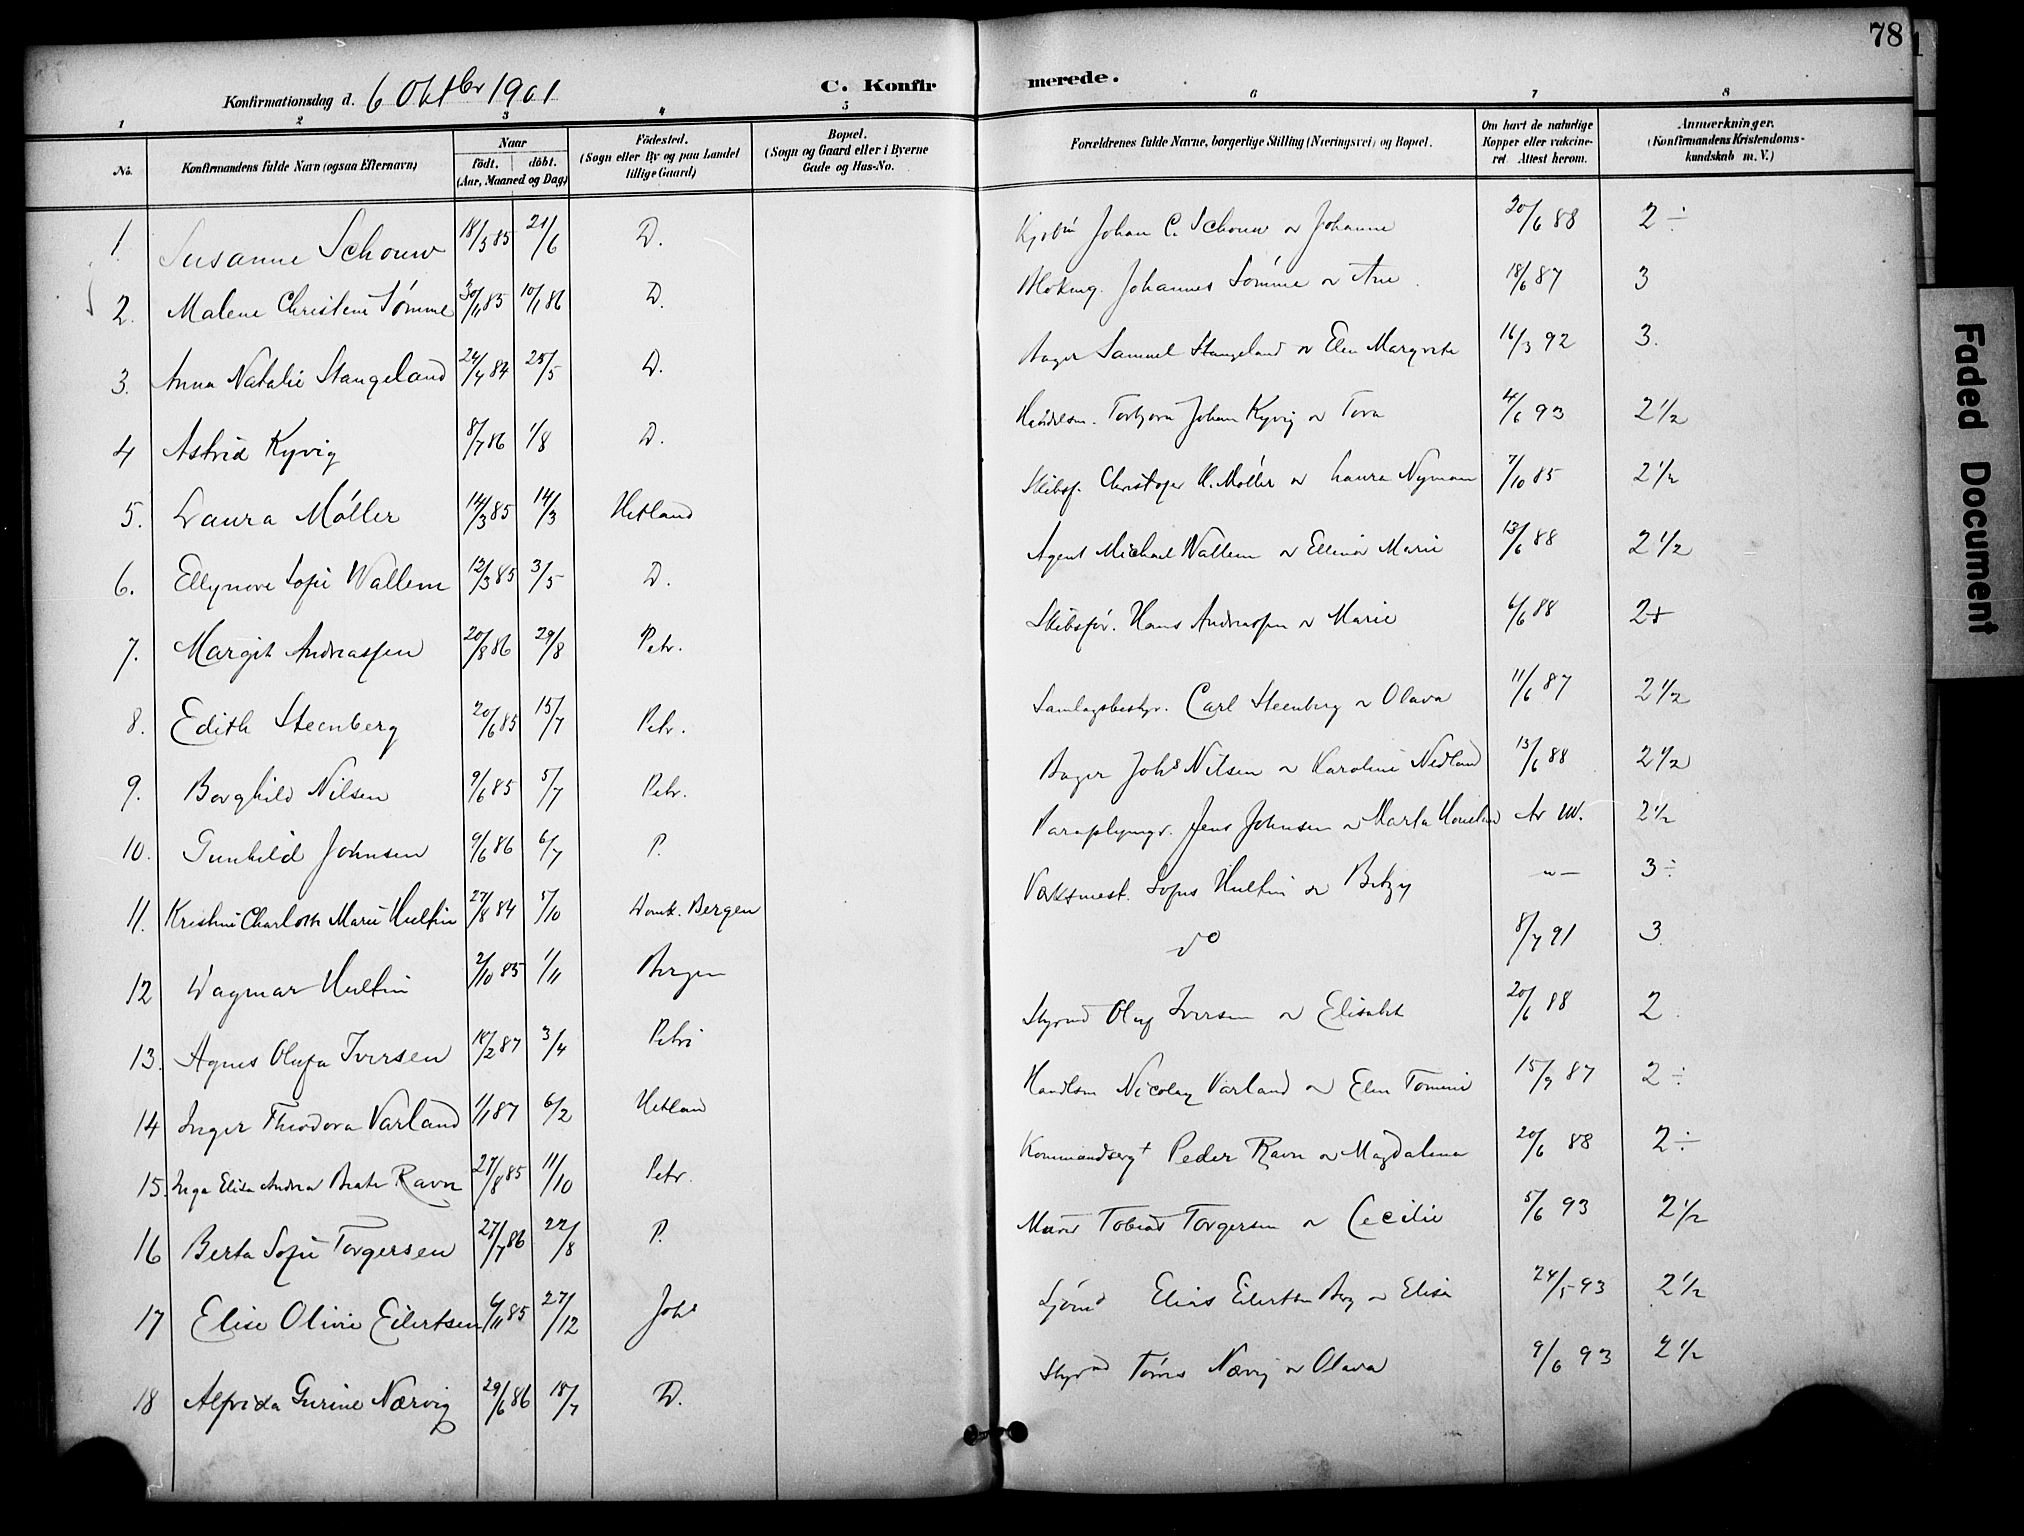 78
Konfirmationsdag d. 6 Oktbr 1901
C. Konfirmerede.
1 2 3 4 5 6 7 8
No.
Konfirmandens fulde Navn (ogsaa Efternavn)
Naar
födt. döbt.
(Aar, Maaned og Dag)
Födested.
(Sogn eller By og paa Landet
tillige Gaard)
Bopæl.
(Sogn og Gaard eller i Byerne
Gade og Hus-No.
Forældrenes fulde Navne, borgerlige Stilling (Næringsvei) og Bopæl.
Om havt de naturlige
Kopper eller vakcine-
ret. Attest herom.
Anmærkninger.
(Konfirmandens Kristendoms-
kundskab m. V.)
1. Susanne Schouw 18/5 85 21/6 D. Johan C. Schouw og Johanne 20/6 88 2 ÷
2. Malene Christine Sømme 30/11 85 10/1 86 D. Johannes Sømme og Ane 18/6 87 3
3. Anna Natalie Stangeland 24/4 84 25/5 D. Bager Samuel Stangeland og Elen Margrete 16/3 92 3.
4 Astrid Kyvig 8/7 86 1/8 D. Handelsm. Torbjørn Johan Kyvig og Tora 4/6 93 2 1/2
5. Laura Møller 14/3 85 14/3 Hetland Skibsf. Christofer H. Møller og Laura Nyman 7/10 85 2 1/2
6. Ellynore Sofie Wallem 12/3 85 3/5 D. Agent Michael Wallem og Ellinor Marie 13/6 88 2 1/2
7. Margit Andreassen 20/8 86 29/8 Petr. Skibsfør. Hans Andreassen og Marie 6/6 88 2+
8. Edith Steenberg 20/6 85 15/7 Petr. Samlagsbestyr. Carl Steenberg og Olava 11/6 87 2 1/2
9. Borghild Nilsen 9/6 85 5/7 Petr. Bager Johs Nilsen og Karoline Nedland 13/6 88 2 1/2
10. Gunhild Johnsen 9/6 86 6/7 P. Paraplymgr. Jens Johnsen og Marta 2 1/2
11. Kristine Charlotte Marie Hultin 27/8 84 5/10 Domk. Bergen Sofus Hultin og Betzy -"- 3 ÷
12 Dagmar Hultin 2/10 85 1/11 Bergen do 8/7 91 3
13. Agnes Olufa Iversen 18/2 87 3/4 Petri Styrmd Oluf Iversen og Elisabet 20/6 88 2
14 Inger Theodora Varland 1/1 87 6/2 Hetland Handlsm Nicolay Varland og Elen Tomine 15/9 87 2 ÷
15. Inga Elisa Andrea Beate Ravn 27/8 85 11/10 Petr Kommandsergt Peder Ravn og Magdalena 20/6 88 2 ÷
16 Berta Sofie Torgersen 27/7 86 22/8 P. Murer Tobias Torgersen og Cecilie 5/6 93 2 1/2
17 Elise Olivie Eilertsen 6/11 85 27/12 Johs Sjømd Elias Eilertsen Berg og Elisa 24/5 93 2 1/2
18 Alfrida Gurine Nærvig 29/6 86 18/7 D. Styrmd Tønnes Nærvig og Olava 9/6 93 2 1/2
Faded Document